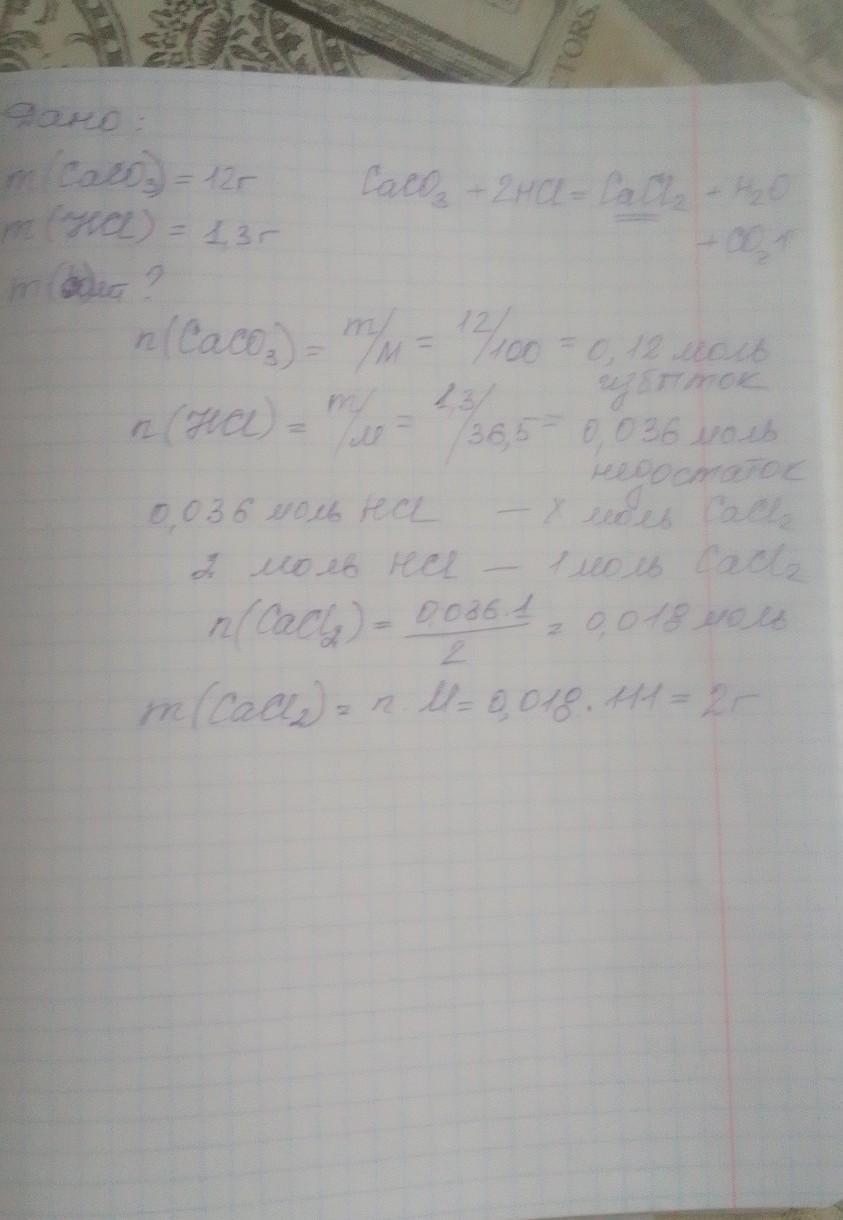 CTORS.
Дано:
m(CaCO₃) = 12г
CaCO₃ + 2HCl = CaCl₂ + H₂O
+ CO₂↑
m(HCl) = 1,3г
m( ?
n(CaCO₃) = m/M = 12/100 = 0,12 моль
избыток
n(HCl) = m/M = 1,3/36,5 = 0,036 моль
недостаток
0,036 моль HCl — x моль CaCl₂
2 моль HCl — 1 моль CaCl₂
n(CaCl₂) = 0,036·1/2 = 0,018 моль
m(CaCl₂) = n·M = 0,018·111 = 2г